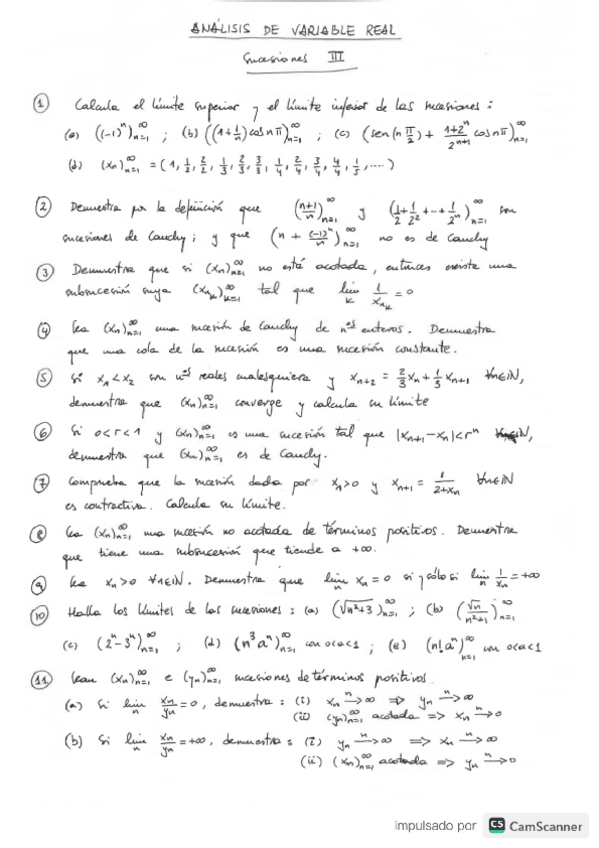 ANÁLISIS DE VARIABLE REAL
Sucesiones III
① Calcula el límite superior y el límite inferior de las sucesiones:
(a) ((-1)^n)_{n=1}^∞ ; (b) ((1+1/n) cos nπ)_{n=1}^∞ ; (c) (sen(n π/2) + (1+2^n)/2^{n+1} cos nπ)_{n=1}^∞
(d) (x_n)_{n=1}^∞ = (1, 1/2, 2/2, 1/3, 2/3, 3/3, 1/4, 2/4, 3/4, 4/4, 1/5, ....)
② Demuestra por la definición que ((n+1)/n)_{n=1}^∞ y (1/2 + 1/2^2 + ... + 1/2^n)_{n=1}^∞ son
sucesiones de Cauchy; y que (n + (-1)^n/n)_{n=1}^∞ no es de Cauchy
③ Demuestra que si (x_n)_{n=1}^∞ no está acotada, entonces existe una
subsucesión suya (x_{n_k})_{k=1}^∞ tal que lim_k 1/x_{n_k} = 0
④ Sea (x_n)_{n=1}^∞ una sucesión de Cauchy de nºs enteros. Demuestra
que una cola de la sucesión es una sucesión constante.
⑤ Si x_1 < x_2 son nºs reales cualesquiera y x_{n+2} = 2/3 x_n + 1/3 x_{n+1} ∀n∈ℕ,
demuestra que (x_n)_{n=1}^∞ converge y calcula su límite
⑥ Si 0<r<1 y (x_n)_{n=1}^∞ es una sucesión tal que |x_{n+1} - x_n| < r^n ∀n∈ℕ,
demuestra que (x_n)_{n=1}^∞ es de Cauchy.
⑦ Comprueba que la sucesión dada por x_1>0 y x_{n+1} = 1/(2+x_n) ∀n∈ℕ
es contractiva. Calcula su límite.
⑧ Sea (x_n)_{n=1}^∞ una sucesión no acotada de términos positivos. Demuestra
que tiene una subsucesión que tiende a +∞.
⑨ Sea x_n>0 ∀n∈ℕ. Demuestra que lim_n x_n = 0 si y sólo si lim_n 1/x_n = +∞
⑩ Halla los límites de las sucesiones: (a) (√(n^2+3))_{n=1}^∞ ; (b) (√n/(n^2+1))_{n=1}^∞
(c) (2^n - 3^n)_{n=1}^∞ ; (d) (n^3 a^n)_{n=1}^∞ con 0<a<1 ; (e) (n! a^n)_{n=1}^∞ con 0<a<1
⑪ Sean (x_n)_{n=1}^∞ e (y_n)_{n=1}^∞ sucesiones de términos positivos.
(a) Si lim_n x_n/y_n = 0, demuestra: (i) x_n →^n ∞ ⇒ y_n →^n ∞
(ii) (y_n)_{n=1}^∞ acotada ⇒ x_n →^n 0
(b) Si lim_n x_n/y_n = +∞, demuestra: (i) y_n →^n ∞ ⇒ x_n →^n ∞
(ii) (x_n)_{n=1}^∞ acotada ⇒ y_n →^n 0
impulsado por CS CamScanner